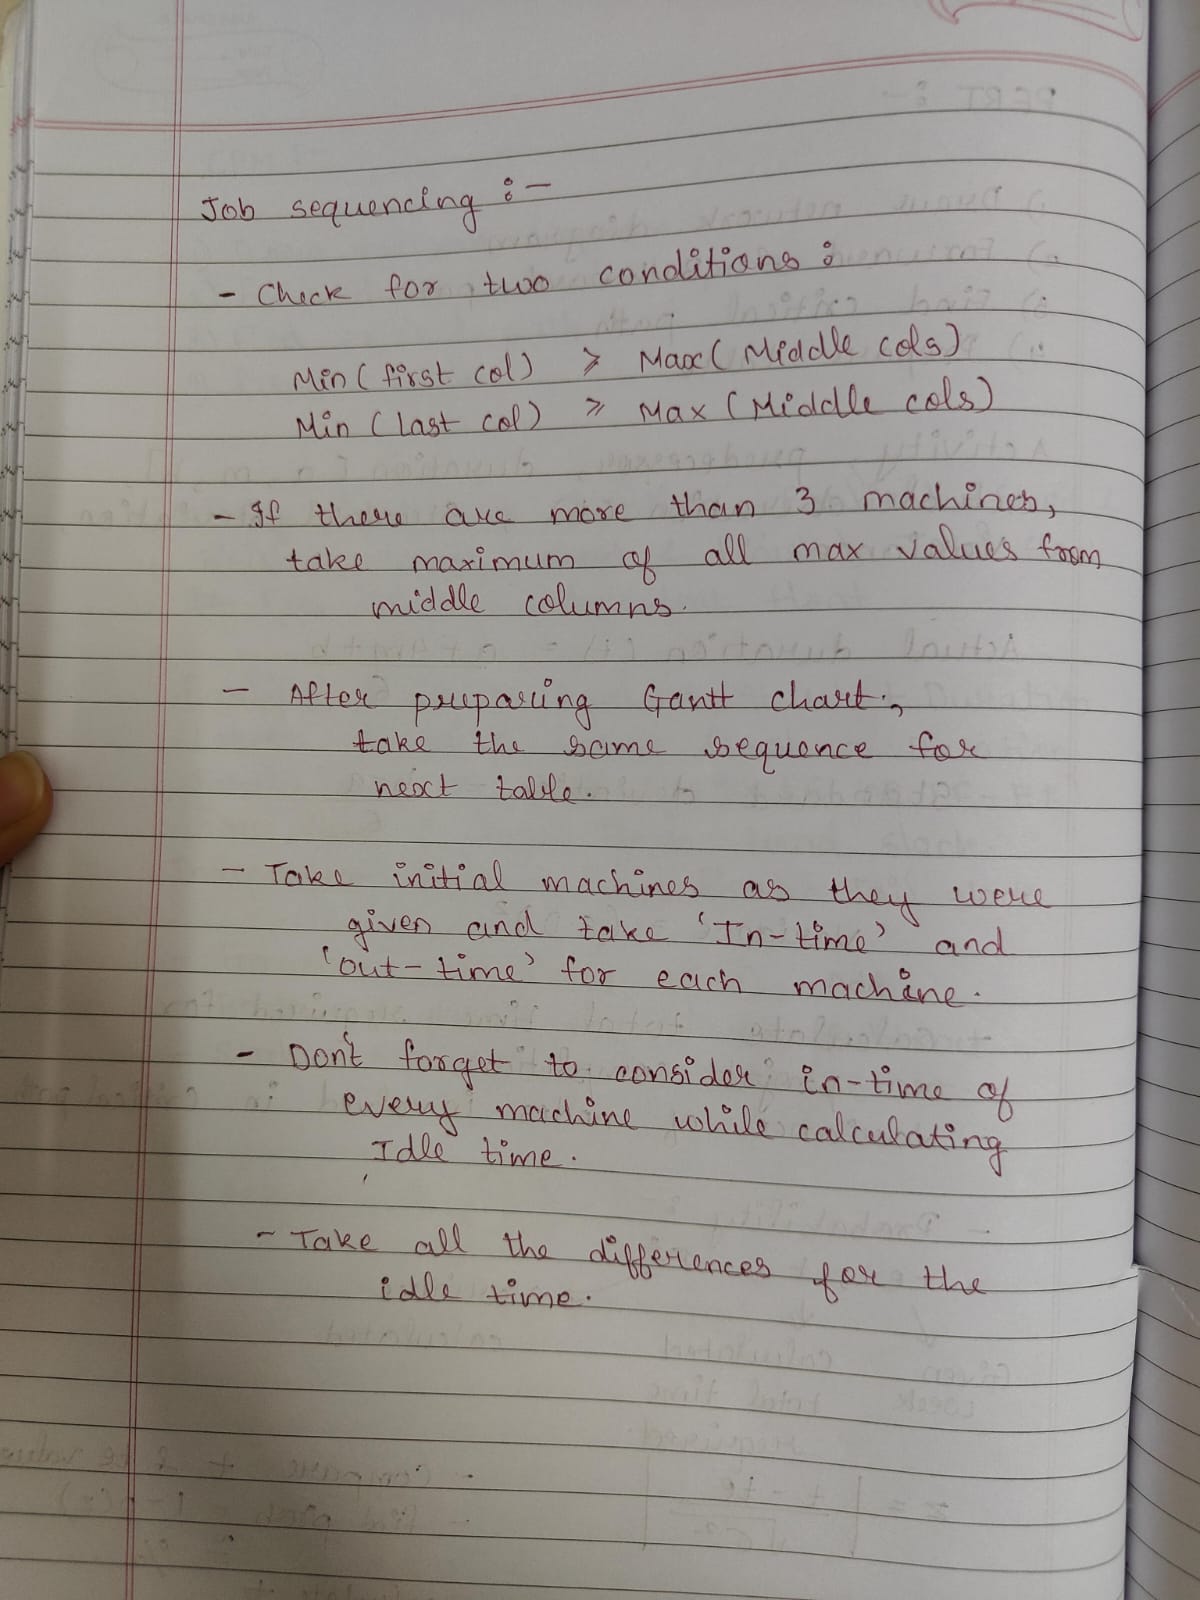 Job sequencing :-
- Check for two conditions :
Min ( first col ) ≥ Max ( Middle cols )
Min ( last col ) ≥ Max ( Middle cols )
- If there are more than 3 machines,
take maximum of all max values from
middle columns.
- After preparing Gantt chart,
take the same sequence for
next table.
- Take initial machines as they were
given and take 'In-time' and
'out-time' for each machine.
- Don't forget to consider in-time of
every machine while calculating
Idle time.
- Take all the differences for the
idle time.